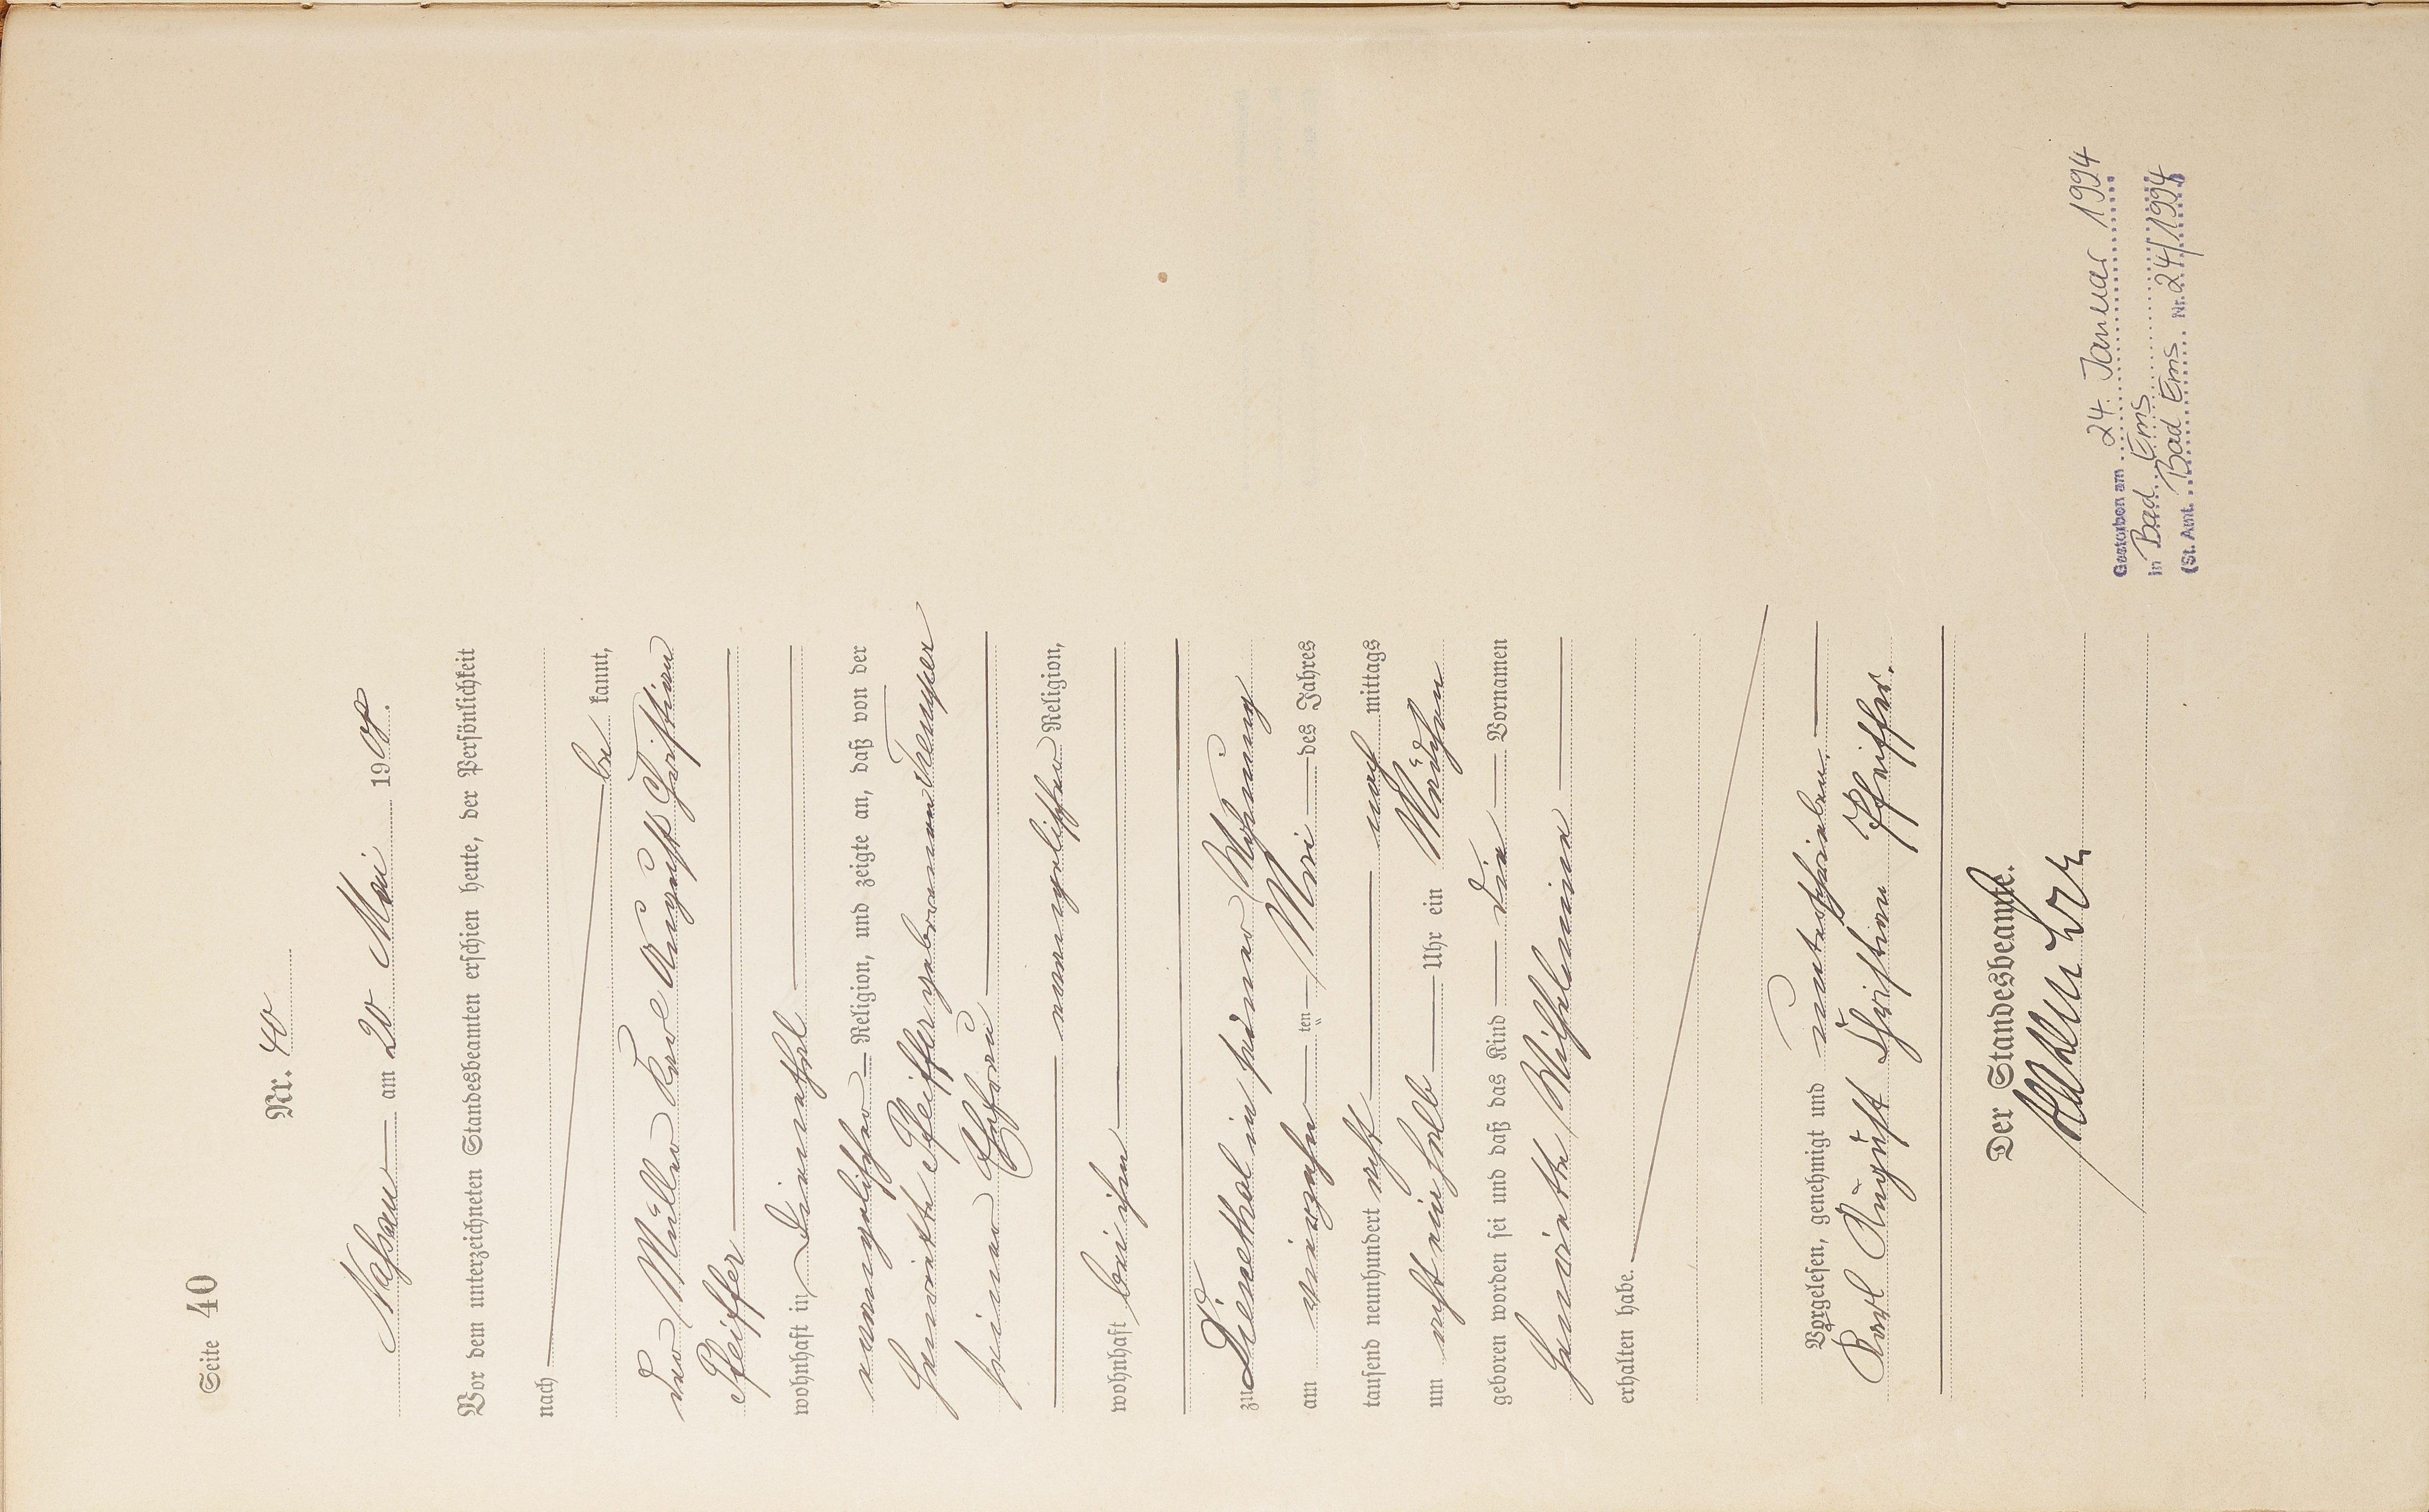 Seite 40
Nr. 40
Nassau am 20 Mai 1908.
Vor dem unterzeichneten Standesbeamten erschien heute, der Persönlichkeit
nach
be kannt,
der Müller Karl August Christian
Pfeiffer
wohnhaft in Dienethal
evangelischer Religion, und zeigte an, daß von der
Henriette Pfeiffer geborenen Kemper
seiner Ehefrau
evangelischer Religion,
wohnhaft bei ihm
zu Dienethal in seiner Wohnung
am vierzehn ten Mai des Jahres
tausend neunhundert acht nach mittags
um acht einhalb Uhr ein Mädchen
geboren worden sei und daß das Kind die Vornamen
Henriette Wilhelmine
erhalten habe.
Vorgelesen, genehmigt und unterschrieben.
Karl August Christian Pfeiffer.
Der Standesbeamte.
Gestorben am 24. Januar 1994
in Bad Ems
(St. Amt. Bad Ems Nr. 24/1994)